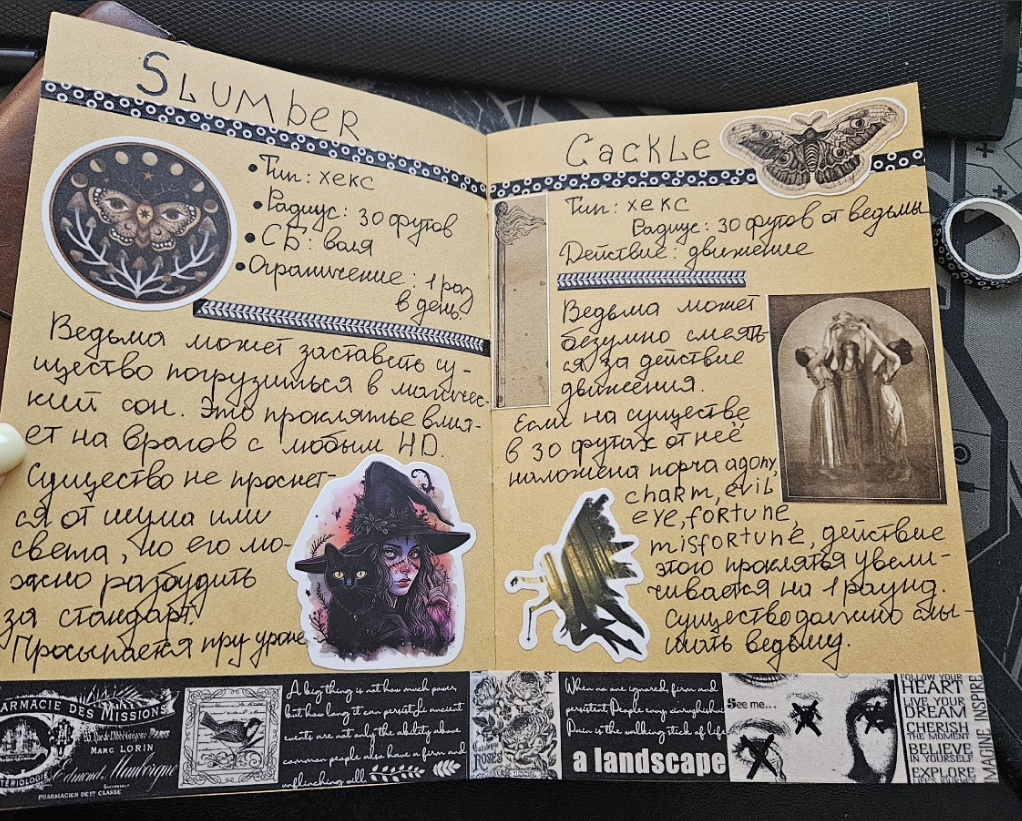 SLUMbeR
• Тип: хекс
• Радиус: 30 футов
• СБ: воля
• Ограничение: 1 раз
в день
Ведьма может заставить су-
щество погрузиться в магичес-
кий сон. Это проклятье влия-
ет на врагов с любым HD.
Существо не проснёт-
ся от шума или
света, но его мо-
жно разбудить
за стандарт.
Просыпается при уроне
CackLe
Тип: хекс
Радиус: 30 футов от ведьмы
Действие: движение
Ведьма может
безумно смеять-
ся за действие
движения.
Если на существе
в 30 футах от неё
наложена порча agony,
charm, evil
eye, fortune,
misfortune, действие
этого проклятья увели-
чивается на 1 раунд.
Существо должно слы-
шать ведьму.
ARMACIE DES MISSIONS
MARC LORIN
Edmond Mauborgne
TÉRIOLOGIE
PHARMACIEN DE 1re CLASSE
A big thing is not how much power,
but how long it can persist. In ancient
events are not only the ability above
common people also have a firm and
flinching will
ROSES
When no are ignored, firm and
persistent People envy
Pain is the walking stick of life
a landscape
See me...
FOLLOW YOUR
HEART
LIVE YOUR
DREAM
CHERISH
THE MOMENT
BELIEVE
IN YOURSELF
EXPLORE
IMAGINE INSPIRE